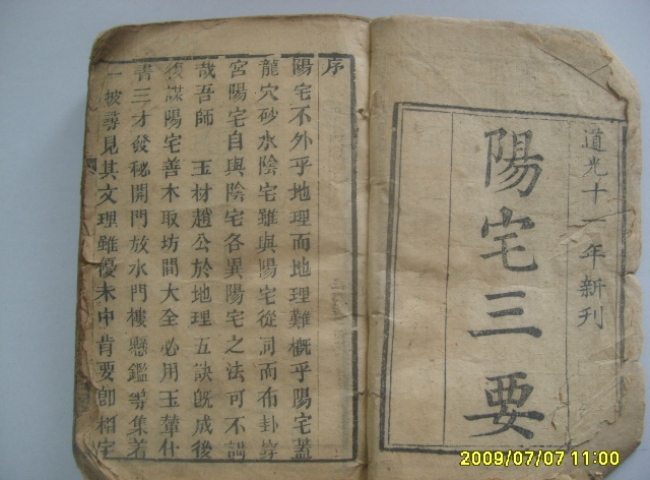 道光十一年新刊
陽宅三要
序
陽宅不外乎地理而地理難概乎陽宅蓋
龍穴砂水陰宅雖與陽宅從同而布卦
宮陽宅自與陰宅各異陽宅之法可不講
哉吾師 玉材趙公於地理五訣既成後
謀陽宅善木取坊間大全必用玉輦什
書三才發秘開門放水門樓懸鑑等集著
一被尋見其文理雖優未中肯要卽相宅
2009/07/07 11:00